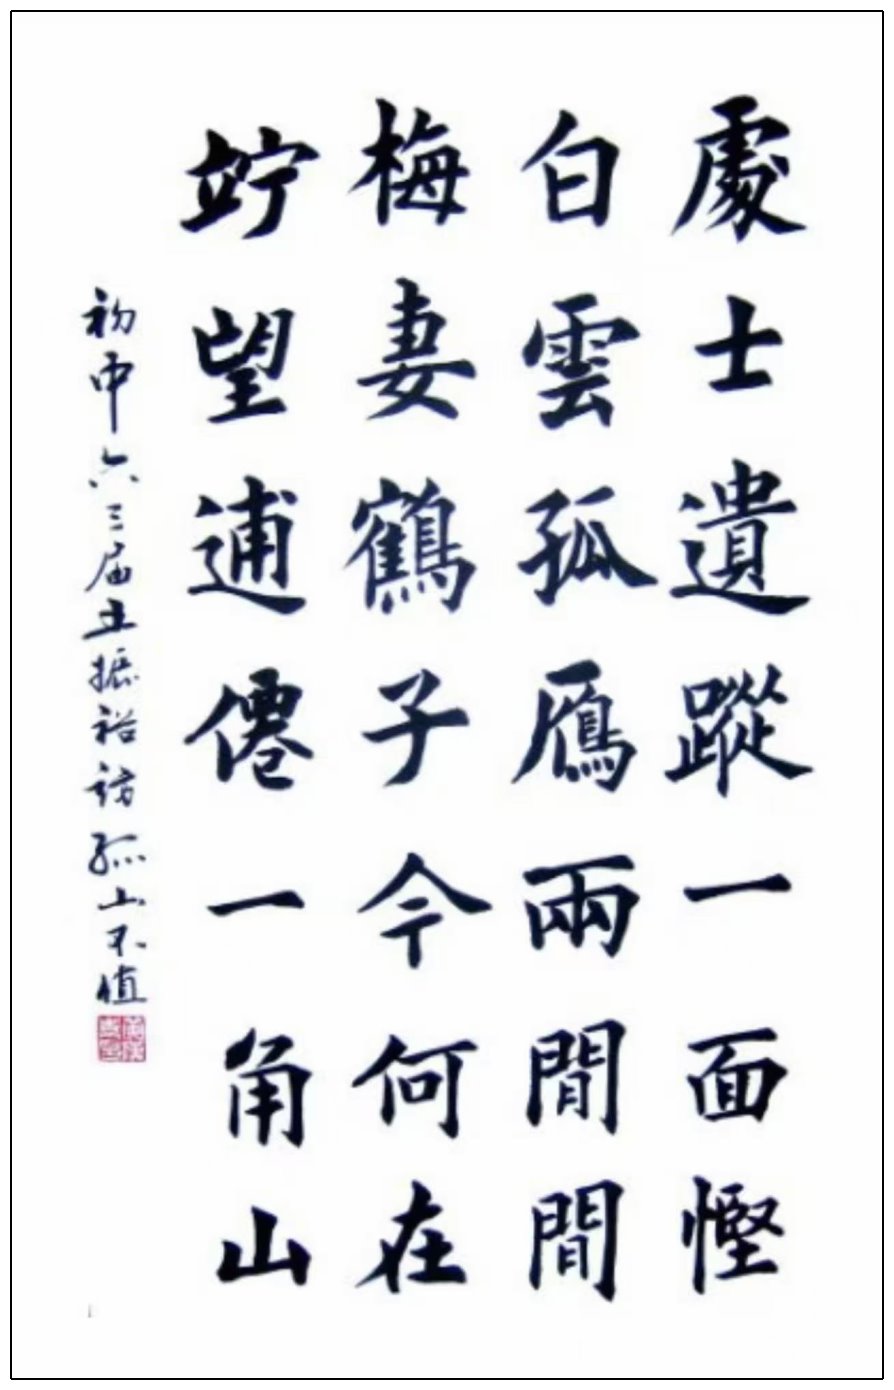 處士遺蹤一面慳
白雲孤鴈兩間間
梅妻鶴子今何在
竚望逋僊一角山
初中六三届王振裕訪孤山不值